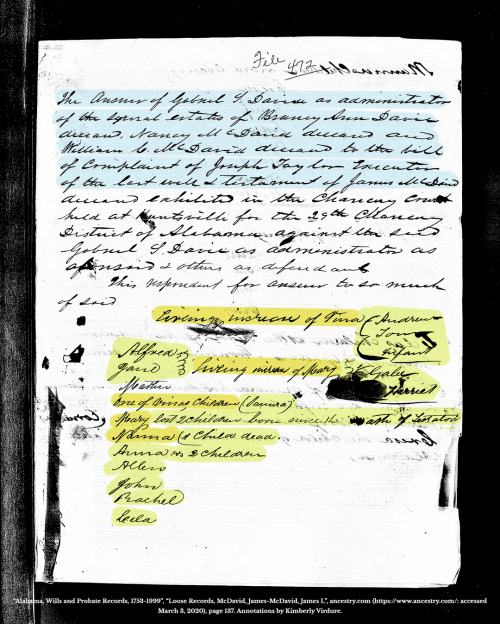 File 477
The Answer of Gabriel S. Davie as administrator
of the several estates of Brancy Ann Davie
deceased. Nancy McDavid deceased and
William C. McDavid deceased to the bill
of Complaint of Joseph Taylor Executor
of the last will & testament of James McDavid
deceased exhibited in the Chancery Court
held at Huntsville for the 29th Chancery
District of Alabama against the said
Gabriel S. Davie as administrator as
aforesaid & others as defendants
This respondent for answer to so much
of said
Liveing increase of Tina { Andrew
Tom
infant
Alfred
Jane
liveing increase of Mary
Gabe
Harriet
Martha
One of Ednas Children (Samira)
Mary lost 2 children born since the death of Testator
Nanna (1 Child dead.
Anna & 2 children
Allen
John
Rachel
Leila
"Alabama, Wills and Probate Records, 1753-1999", "Loose Records, McDavid, James-McDavid, James I.", ancestry.com (https://www.ancestry.com/: accessed
March 3, 2020), page 137. Annotations by Kimberly Virdure.